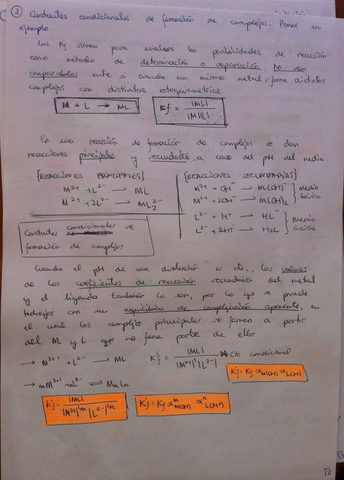 ② Constantes condicionales de formación de complejos. Poner un
ejemplo.
Las Kf sirven para evaluar las posibilidades de reacción
como métodos de determinación o separación. No son
comparables entre sí cuando un mismo metal forma distintos
complejos con distintas estequiometrías.
M + L → ML
Kf = |ML| / |M||L|
En una reacción de formación de complejos se dan
reacciones principales y secundarias, a causa del pH del medio
[REACCIONES PRINCIPALES]
M²⁺ + L²⁻ → ML
M²⁺ + 2L²⁻ → ML₂²⁻
[REACCIONES SECUNDARIAS]
M²⁺ + OH⁻ → M(OH)⁺
M²⁺ + 2OH⁻ → M(OH)₂
medio básico
L²⁻ + H⁺ → HL⁻
L²⁻ + 2H⁺ → H₂L
medio ácido
Constantes condicionales de
formación de complejos
Cuando el pH de una disolución es cte., los valores
de los coeficientes de reacción secundaria del metal
y el ligando también lo son, por lo que se puede
trabajar con un equilibrio de complejación aparente, en
el cual los complejos principales se forman a partir
del M y L que no forma parte de ellos
→ M²⁺ + L²⁻ → ML
K'f = |ML| / |M²⁺|'|L²⁻|'
Cte condicional
K'f = Kf·αM(OH)·αL(H)
→ mM²⁺ + nL²⁻ ⇌ MmLn
K'f = |ML| / |M²⁺|'ᵐ|L²⁻|'ⁿ
K'f = Kf·αᵐM(OH)·αⁿL(H)